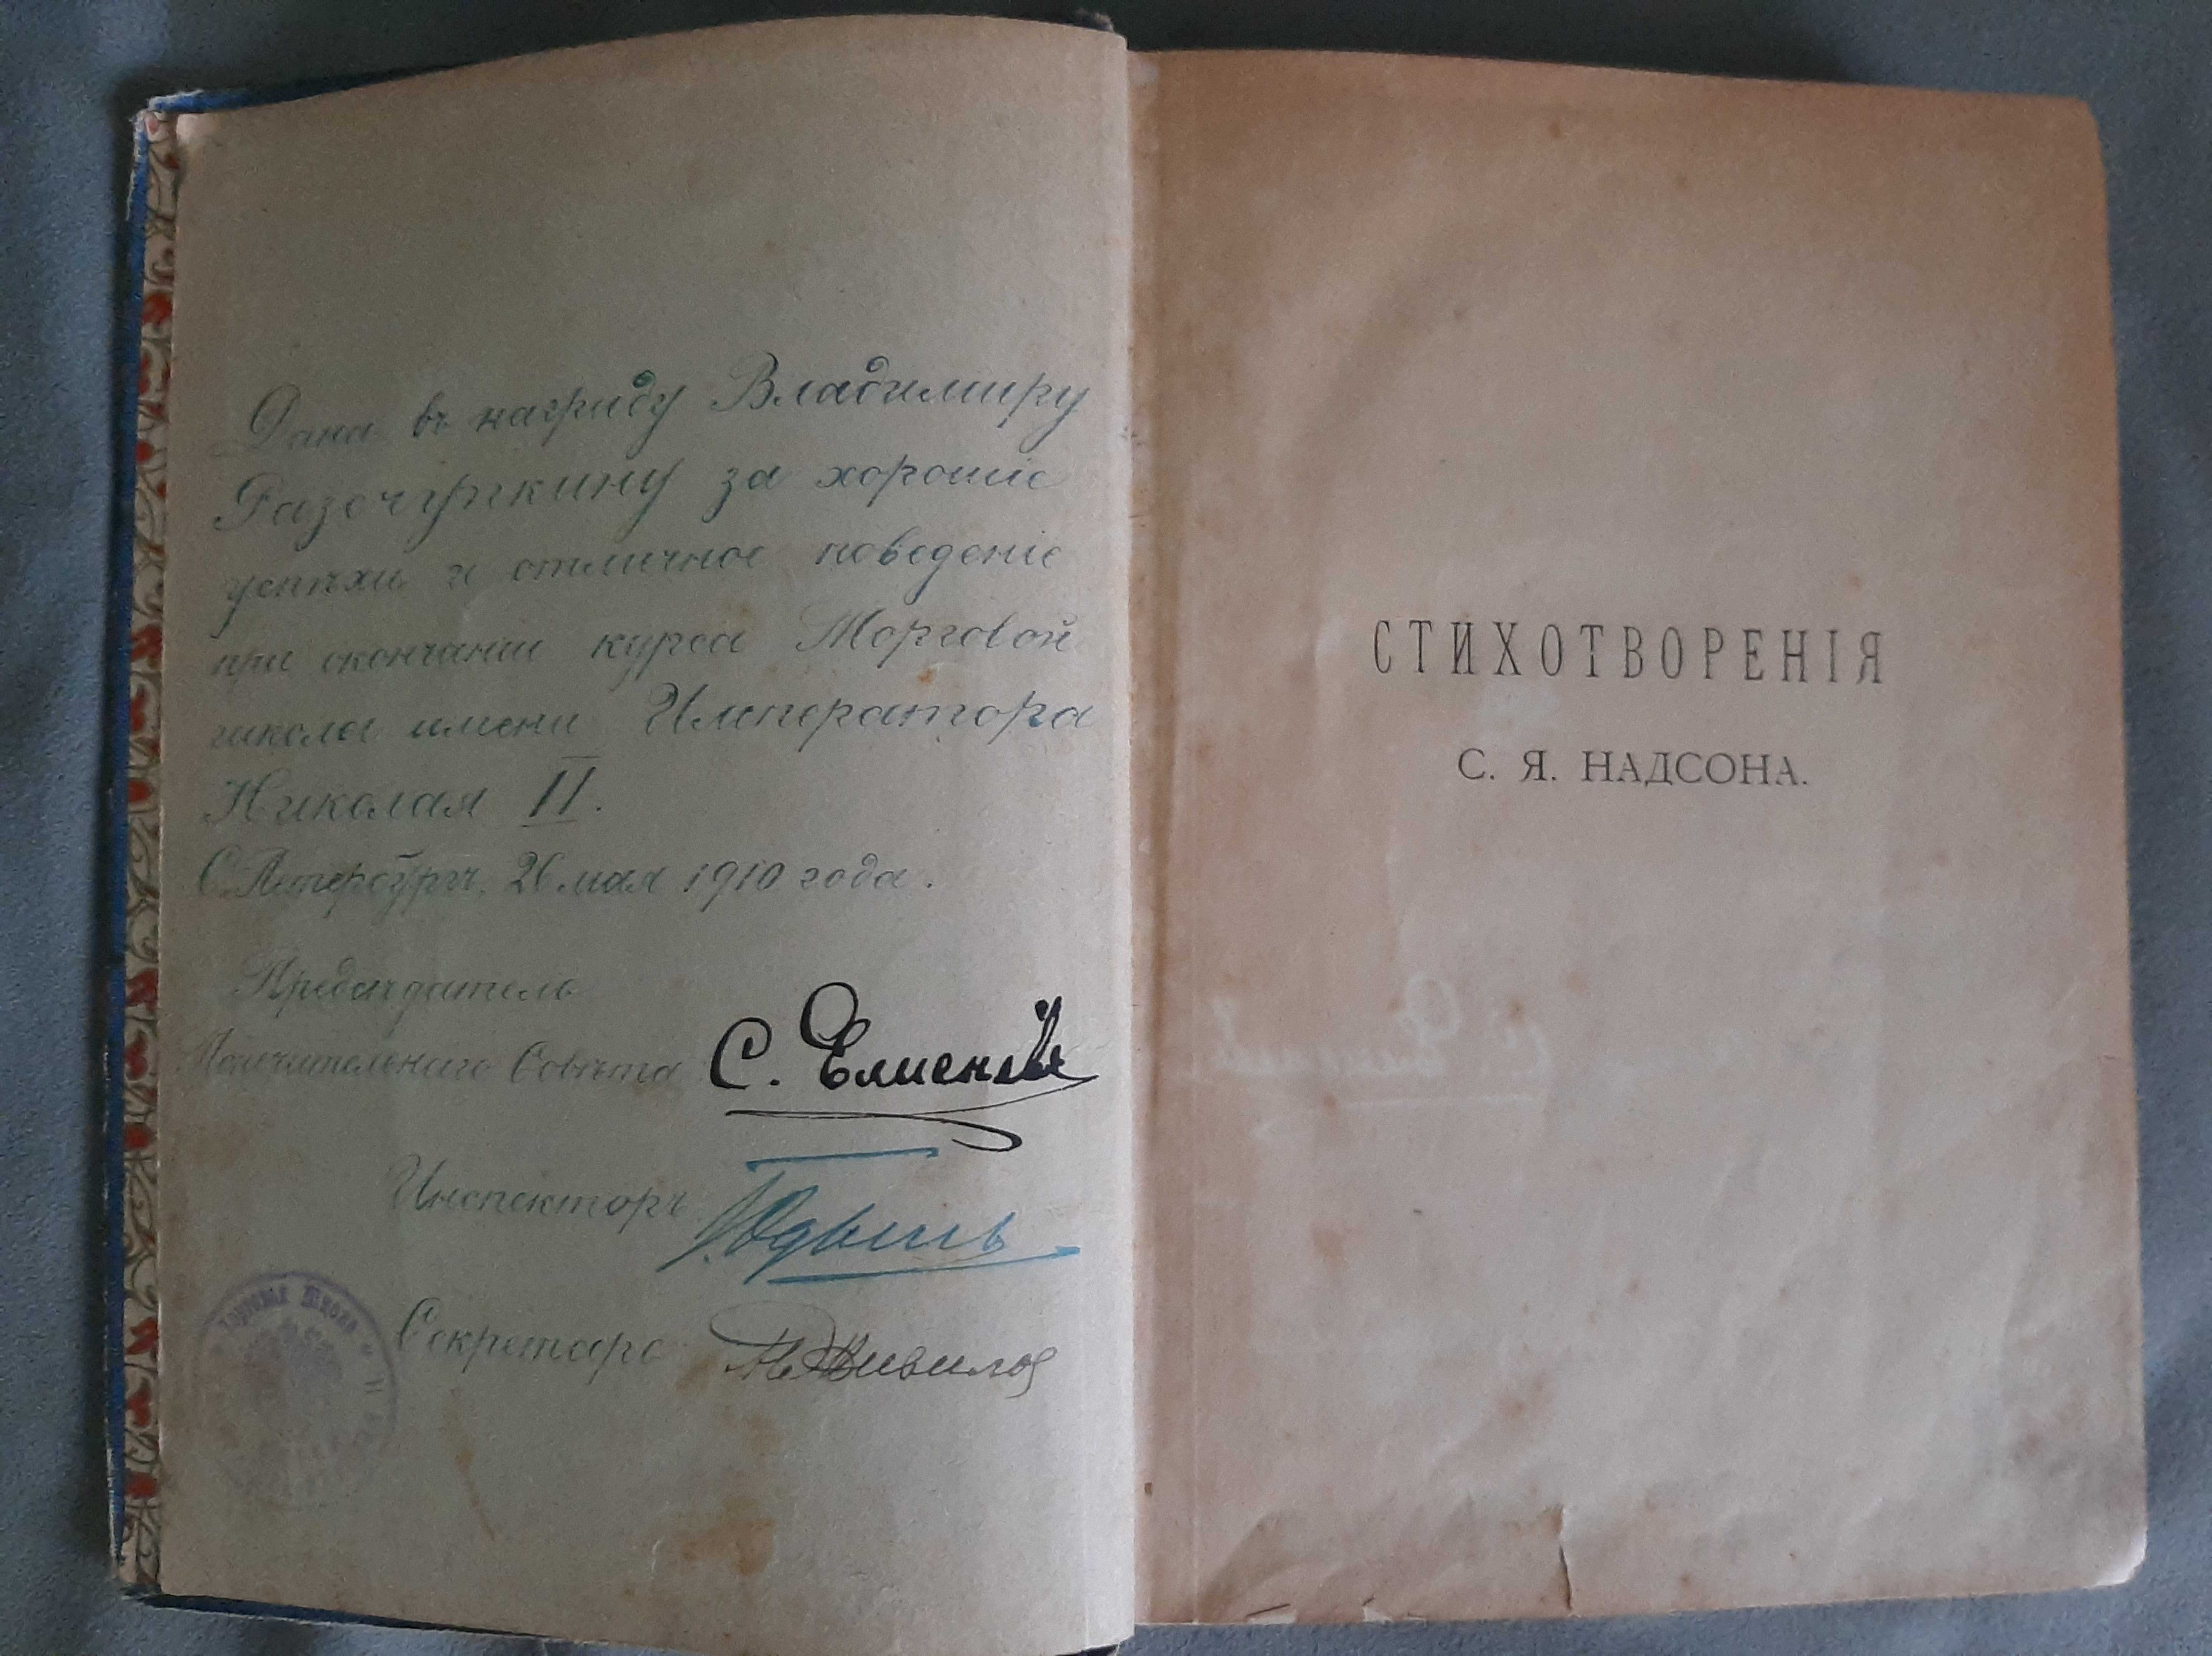 Дана въ награду Владимиру
Разочуркину за хорошіе
успѣхи и отличное поведеніе
при окончаніи курса Торговой
школы имени Императора
Николая II.
С. Петербургъ. 26 мая 1910 года.
Предсѣдатель
Попечительнаго Совѣта С. Елисеевъ
Инспекторъ
Секретарь
Торговая Школа
СТИХОТВОРЕНІЯ
С. Я. НАДСОНА.